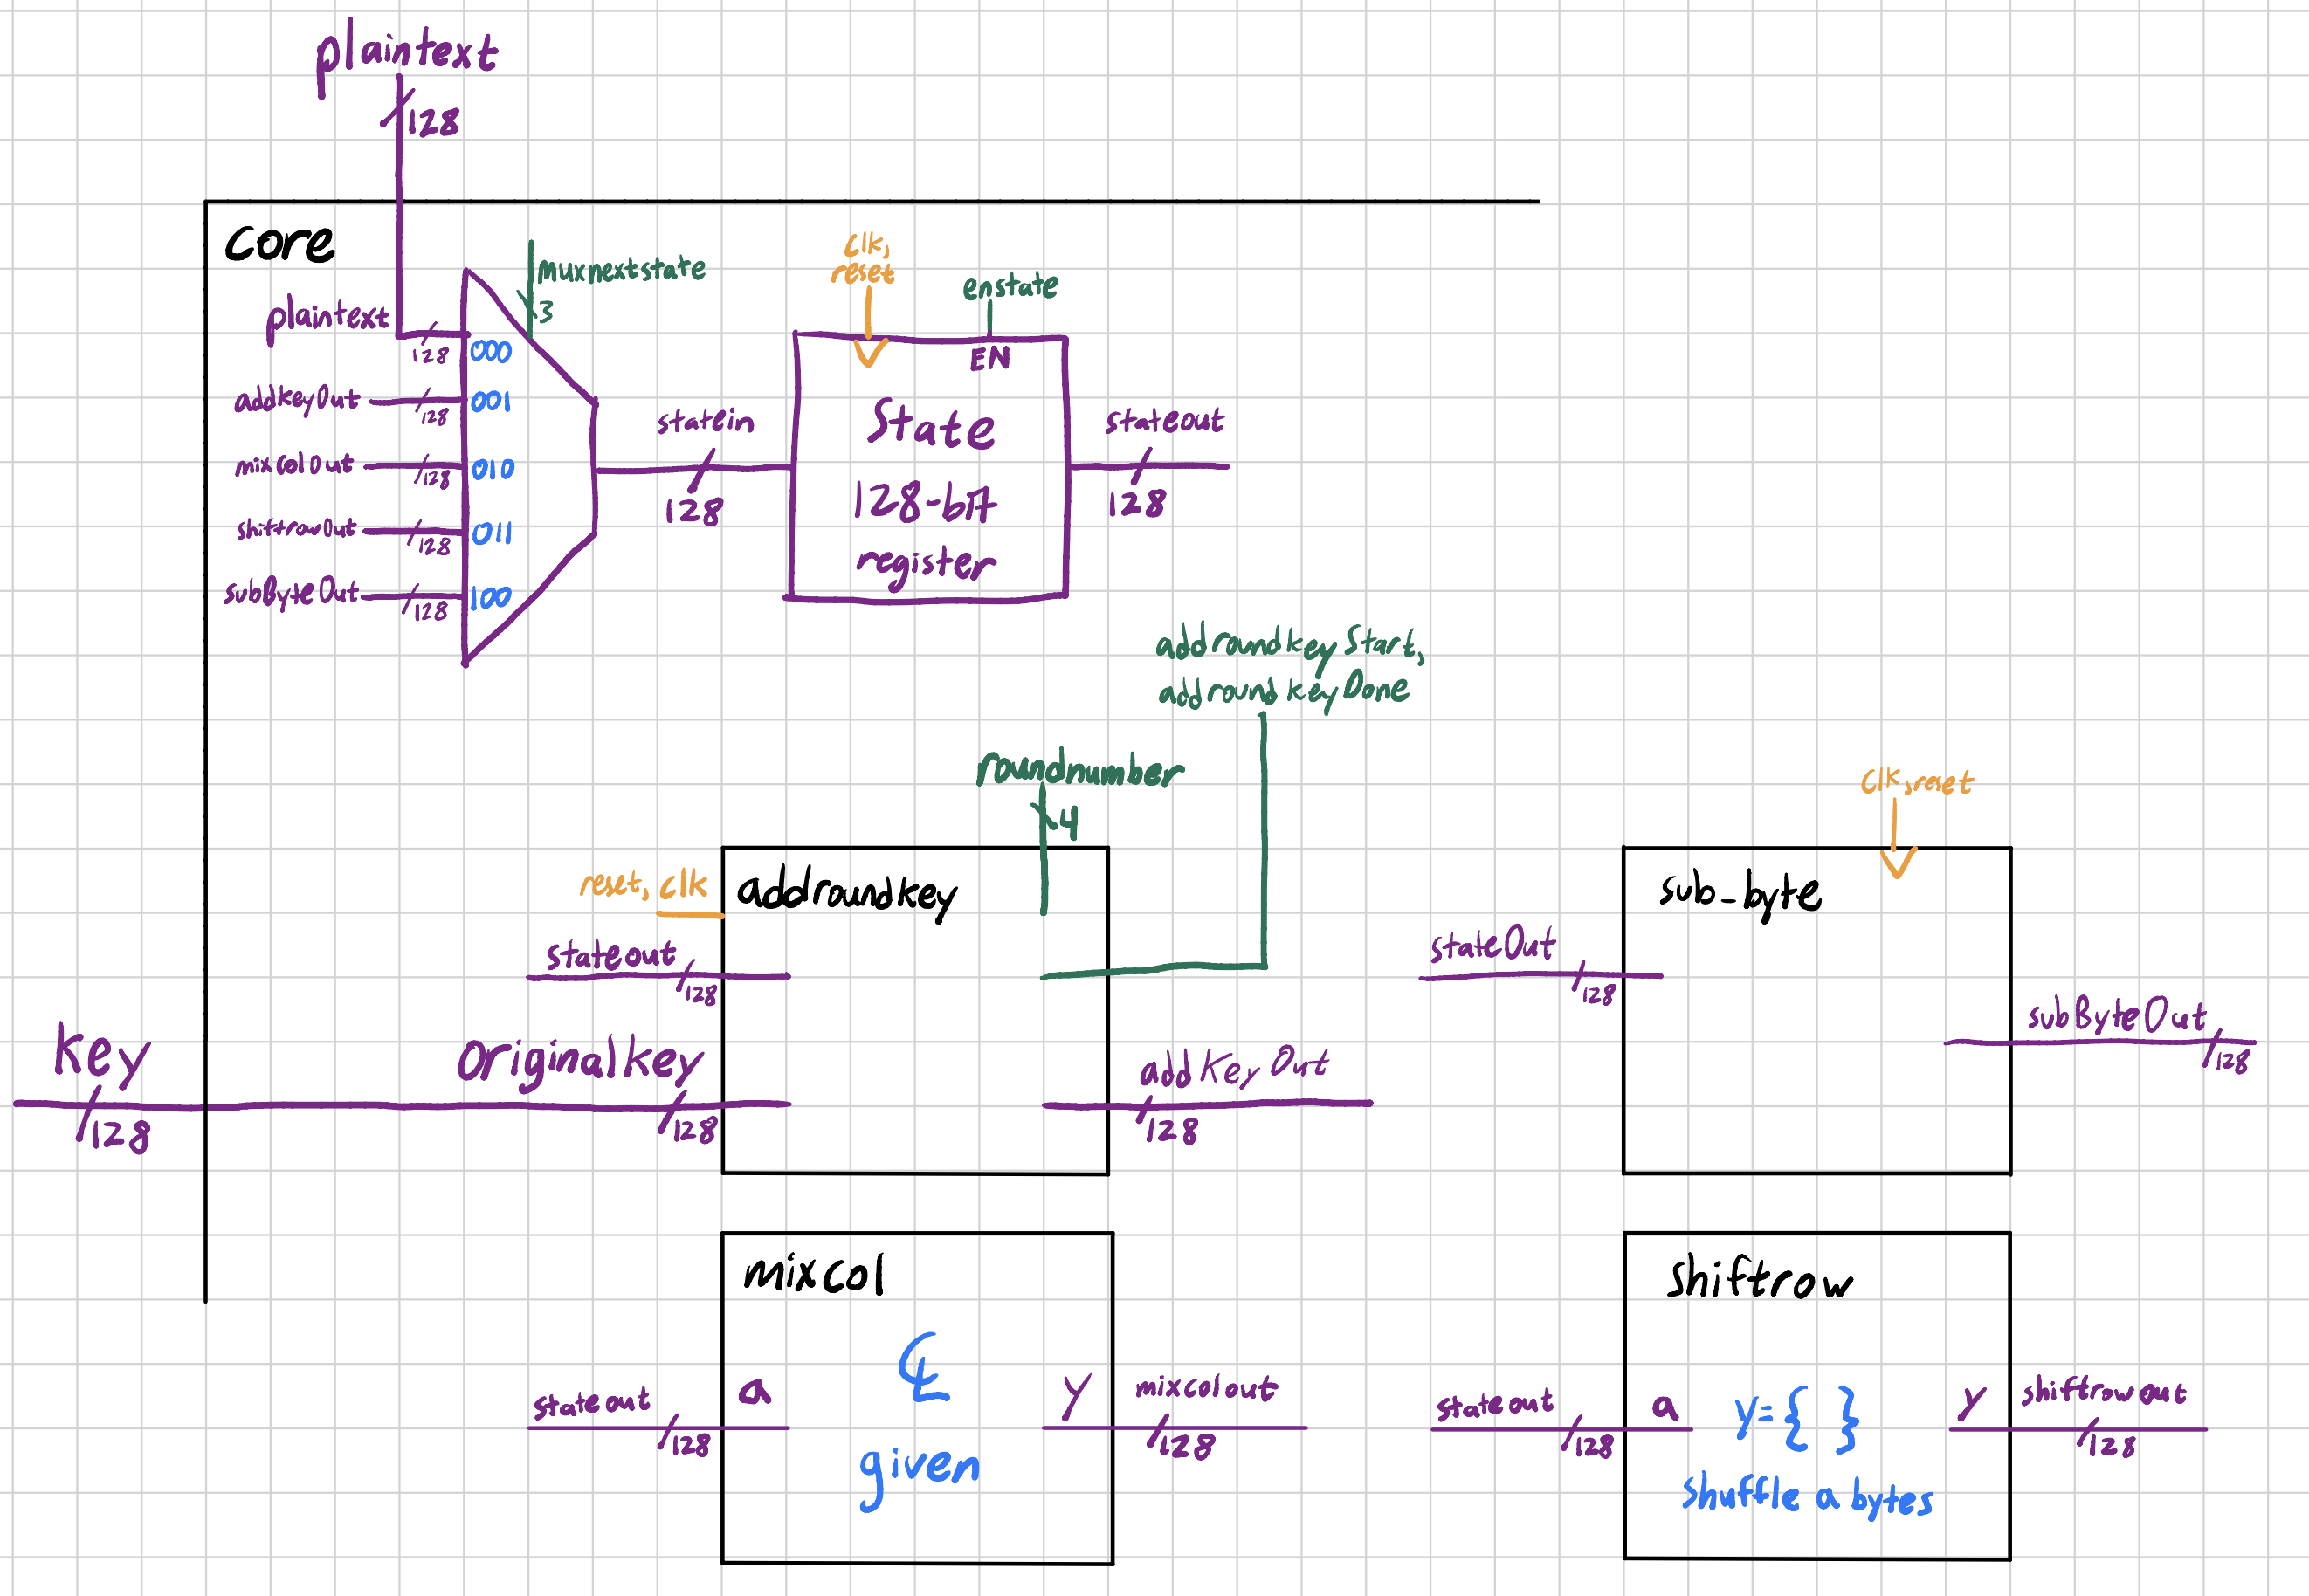 plaintext
128
core
muxnextstate
3
plaintext
128
000
addkeyOut
128
001
mixcolOut
128
010
shiftrowOut
128
011
subByteOut
128
100
statein
128
clk,
reset
enstate
EN
State
128-bit
register
stateout
128
addroundkeyStart,
addroundkeyDone
roundnumber
4
reset, clk
addroundkey
stateout
128
key
128
Originalkey
128
addKeyOut
128
clk, reset
sub_byte
stateOut
128
subByteOut
128
mixcol
stateout
128
a
CL
given
y
mixcolout
128
shiftrow
stateout
128
a
y={ }
shuffle a bytes
y
shiftrowout
128